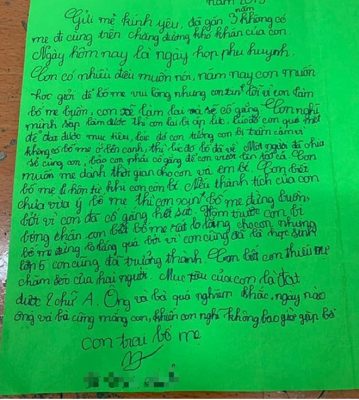 năm 2019
Gửi mẹ kính yêu, đã gần 3 năm không có
mẹ đi cùng trên chặng đường khó khăn của con.
Ngày hôm nay là ngày họp phụ huynh.
Con có nhiều điều muốn nói, năm nay con muốn
học giỏi để bố mẹ vui lòng nhưng con xin lỗi vì con làm
bố mẹ buồn, con xin làm lại và sẽ cố gắng. Con nghĩ
mình sắp làm được thì con lại bị áp lực. Lúc đó con quá mệt
để đạt được mục tiêu, lúc đó con tưởng con bị trầm cảm vì
không có bố mẹ ở bên cạnh, thì lúc đó bố đã về. Một người đã chia
sẻ cùng con, bảo con phải cố gắng để con vượt lên tất cả. Con
muốn mẹ dành thời gian cho con và em bé. Con biết
bố mẹ li hôn từ khi con còn bé. Nếu thành tích của con
chưa vừa ý bố mẹ thì con xin bố mẹ đừng buồn,
bởi vì con đã cố gắng hết sức. Hôm trước con bị
bỏng chân con biết bố mẹ rất lo lắng cho con nhưng
bố mẹ đừng lo lắng quá bởi vì con cũng đã là học sinh
lớp 6 con cũng đã trưởng thành. Con biết con thiếu
chăm sóc của hai người. Mục tiêu của con là đạt
được 2 chữ A. Ông và bà quá nghiêm khắc, ngày nào
ông và bà cũng mắng con, khiến con nghĩ không bao giờ gặp bố
con trai bố mẹ